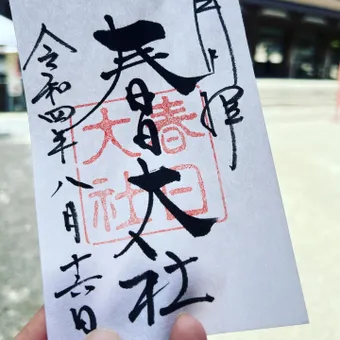 月日拝
春日大社
春日
大社
令和四年八月十六日